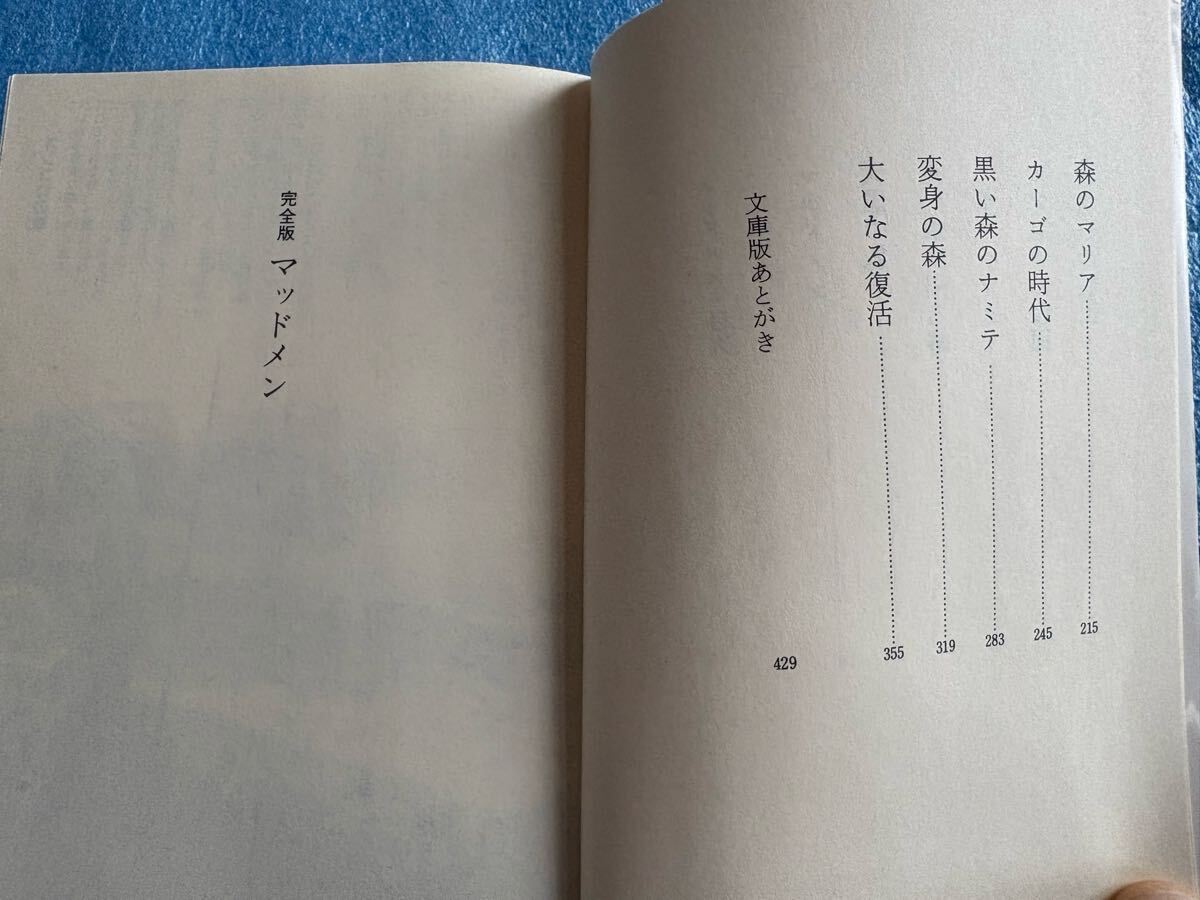 森のマリア……………215
カーゴの時代……………245
黒い森のナミテ……………283
変身の森……………319
大いなる復活……………355
文庫版あとがき 429
完全版 マッドメン